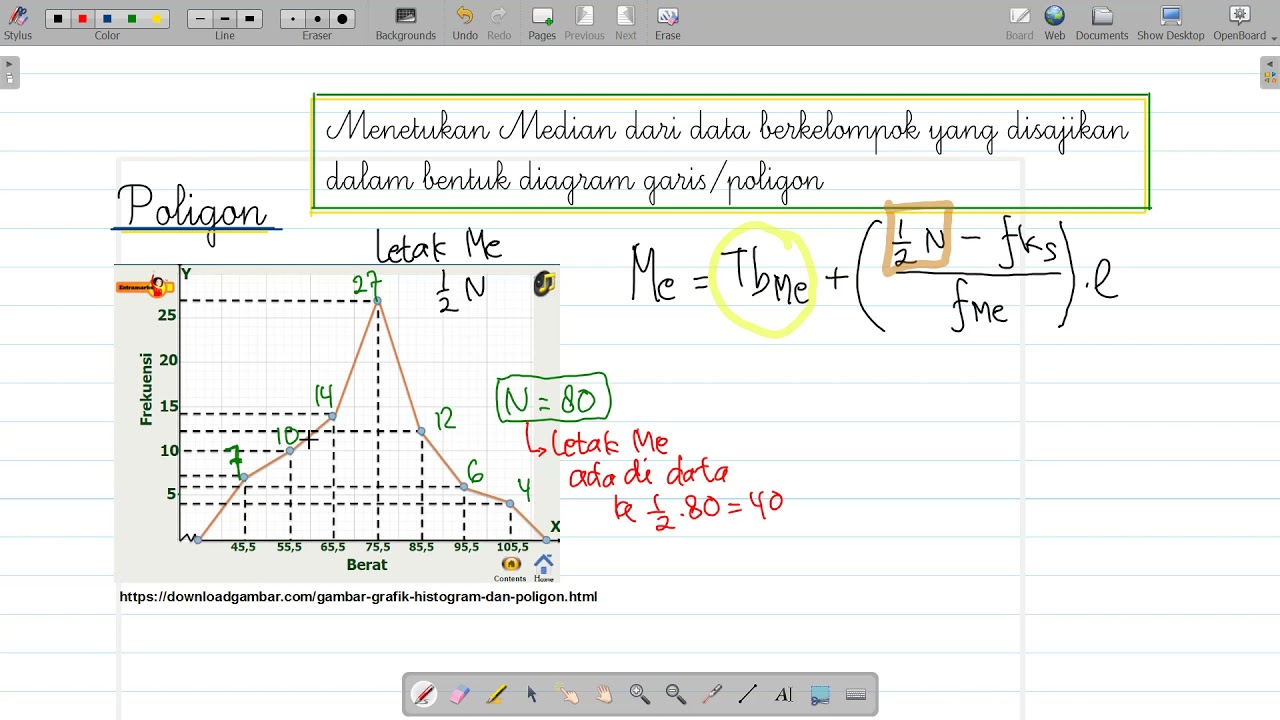 Stylus
Color
Line
Eraser
Backgrounds
Undo
Redo
Pages
Previous
Next
Erase
Board
Web
Documents
Show Desktop
OpenBoard
Menetukan Median dari data berkelompok yang disajikan
dalam bentuk diagram garis/poligon
Poligon
Letak Me
1/2 N
Me = TbMe + ( (1/2 N - fks) / fMe ) . l
Y
27
25
20
15
10
5
Frekuensi
7
10
14
12
6
4
N = 80
Letak Me
ada di data
ke 1/2 . 80 = 40
X
45,5 55,5 65,5 75,5 85,5 95,5 105,5
Berat
Contents
Home
https://downloadgambar.com/gambar-grafik-histogram-dan-poligon.html
AI